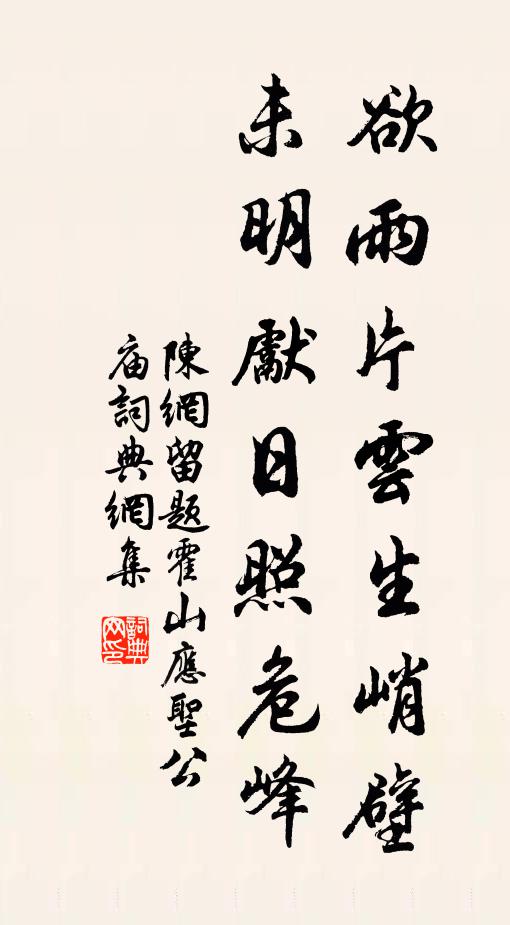 欲雨片雲生峭壁
未明獻日照危峰
陳網留題霍山應聖公
庙詞典網集
詞典網印